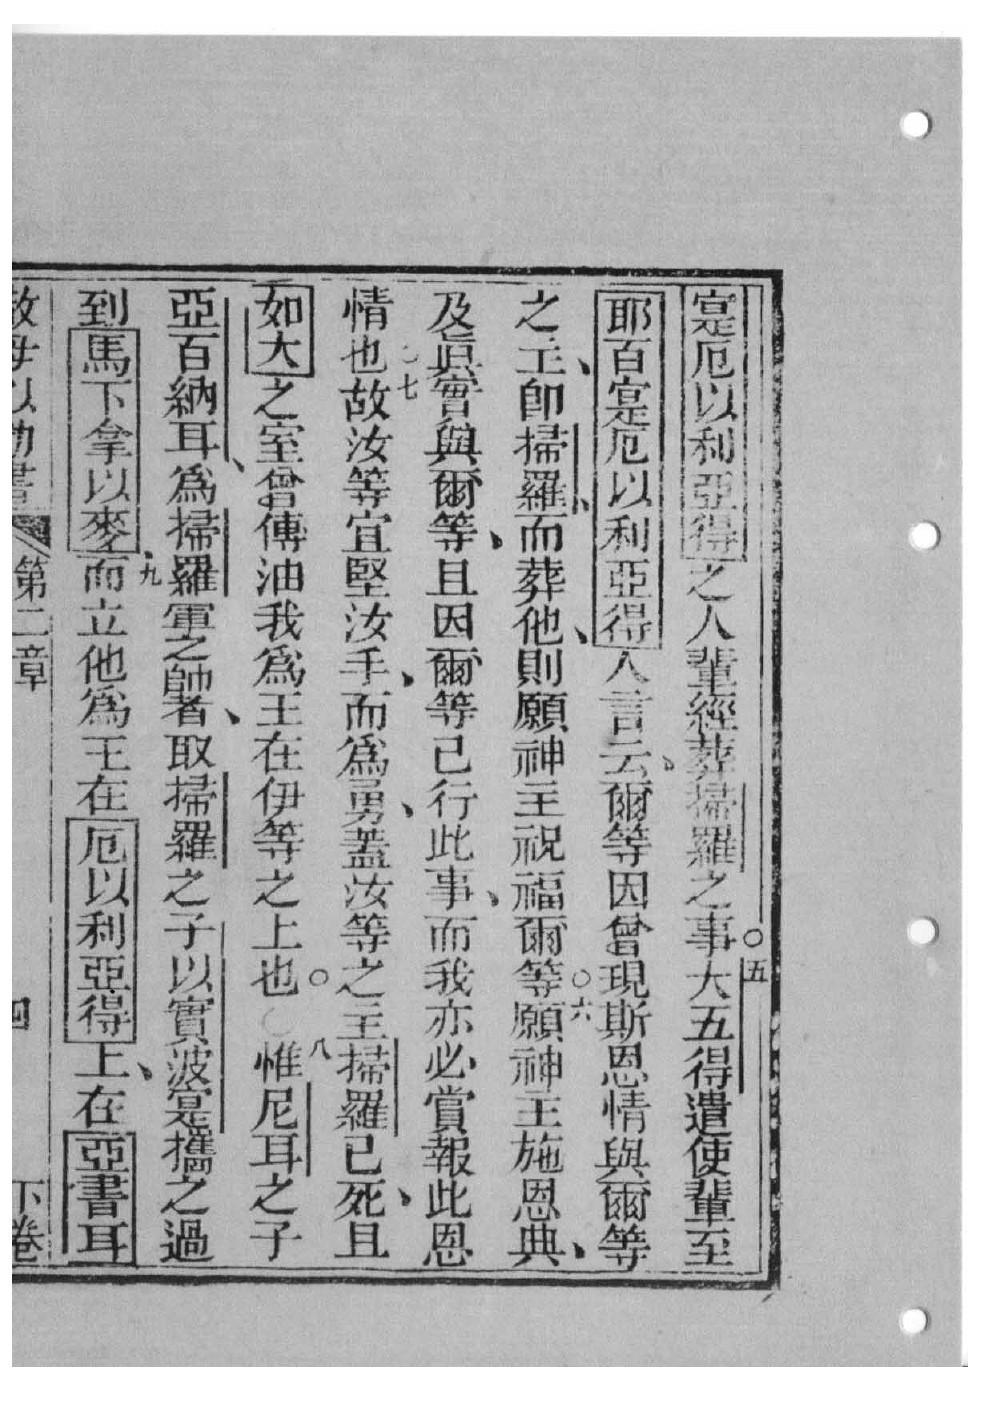 寔厄以利亞得之人輩經葬掃羅之事○五大五得遣使輩至
耶百寔厄以利亞得人言云爾等因曾現斯恩情與爾等
之主、卽掃羅、而葬他、則願神主祝福爾等○六願神主施恩典、
及眞實與爾等、且因爾等已行此事、而我亦必賞報此恩
情也七故汝等宜堅汝手、而爲勇、蓋汝等之主掃羅已死、且
如大之室曾傳油我爲王在伊等之上也○八惟尼耳之子
亞百納耳、爲掃羅軍之帥者、取掃羅之子以實波寔攜之過
到馬下拿以麥、九而立他爲王在厄以利亞得上、在亞書耳
第二章
四
下卷